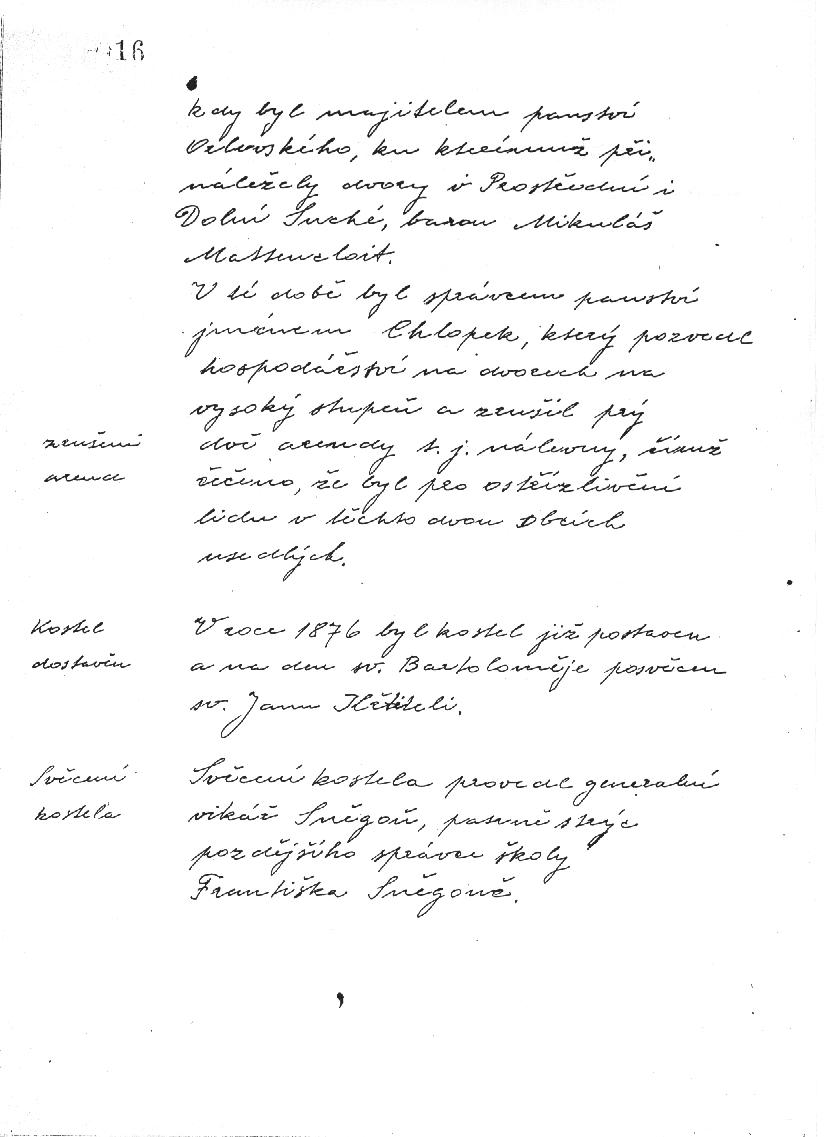 16
kdy byl majitelem panství
Orlovského, ku kterémuž při„
náležely dvory v Prostřední i
Dolní Suché, baron Mikuláš
Mattencloit.
V té době byl správcem panství
jménem Chlopek, který pozvedl
hospodářství na dvorech na
vysoký stupeň a zrušil prý
zrušení
arend
dvě arendy t. j. nálevny, čímž
řečeno, že byl pro ostřízlivění
lidu v těchto dvou obcích
usedlých.
Kostel
dostavěn
V roce 1876 byl kostel již postaven
a na den sv. Bartoloměje posvěcen
sv. Janu Křtiteli.
Svěcení
kostela
Svěcení kostela provedl generalní
vikář Sněgoň, patrně strýc
pozdějšího správce školy
Františka Sněgoně.